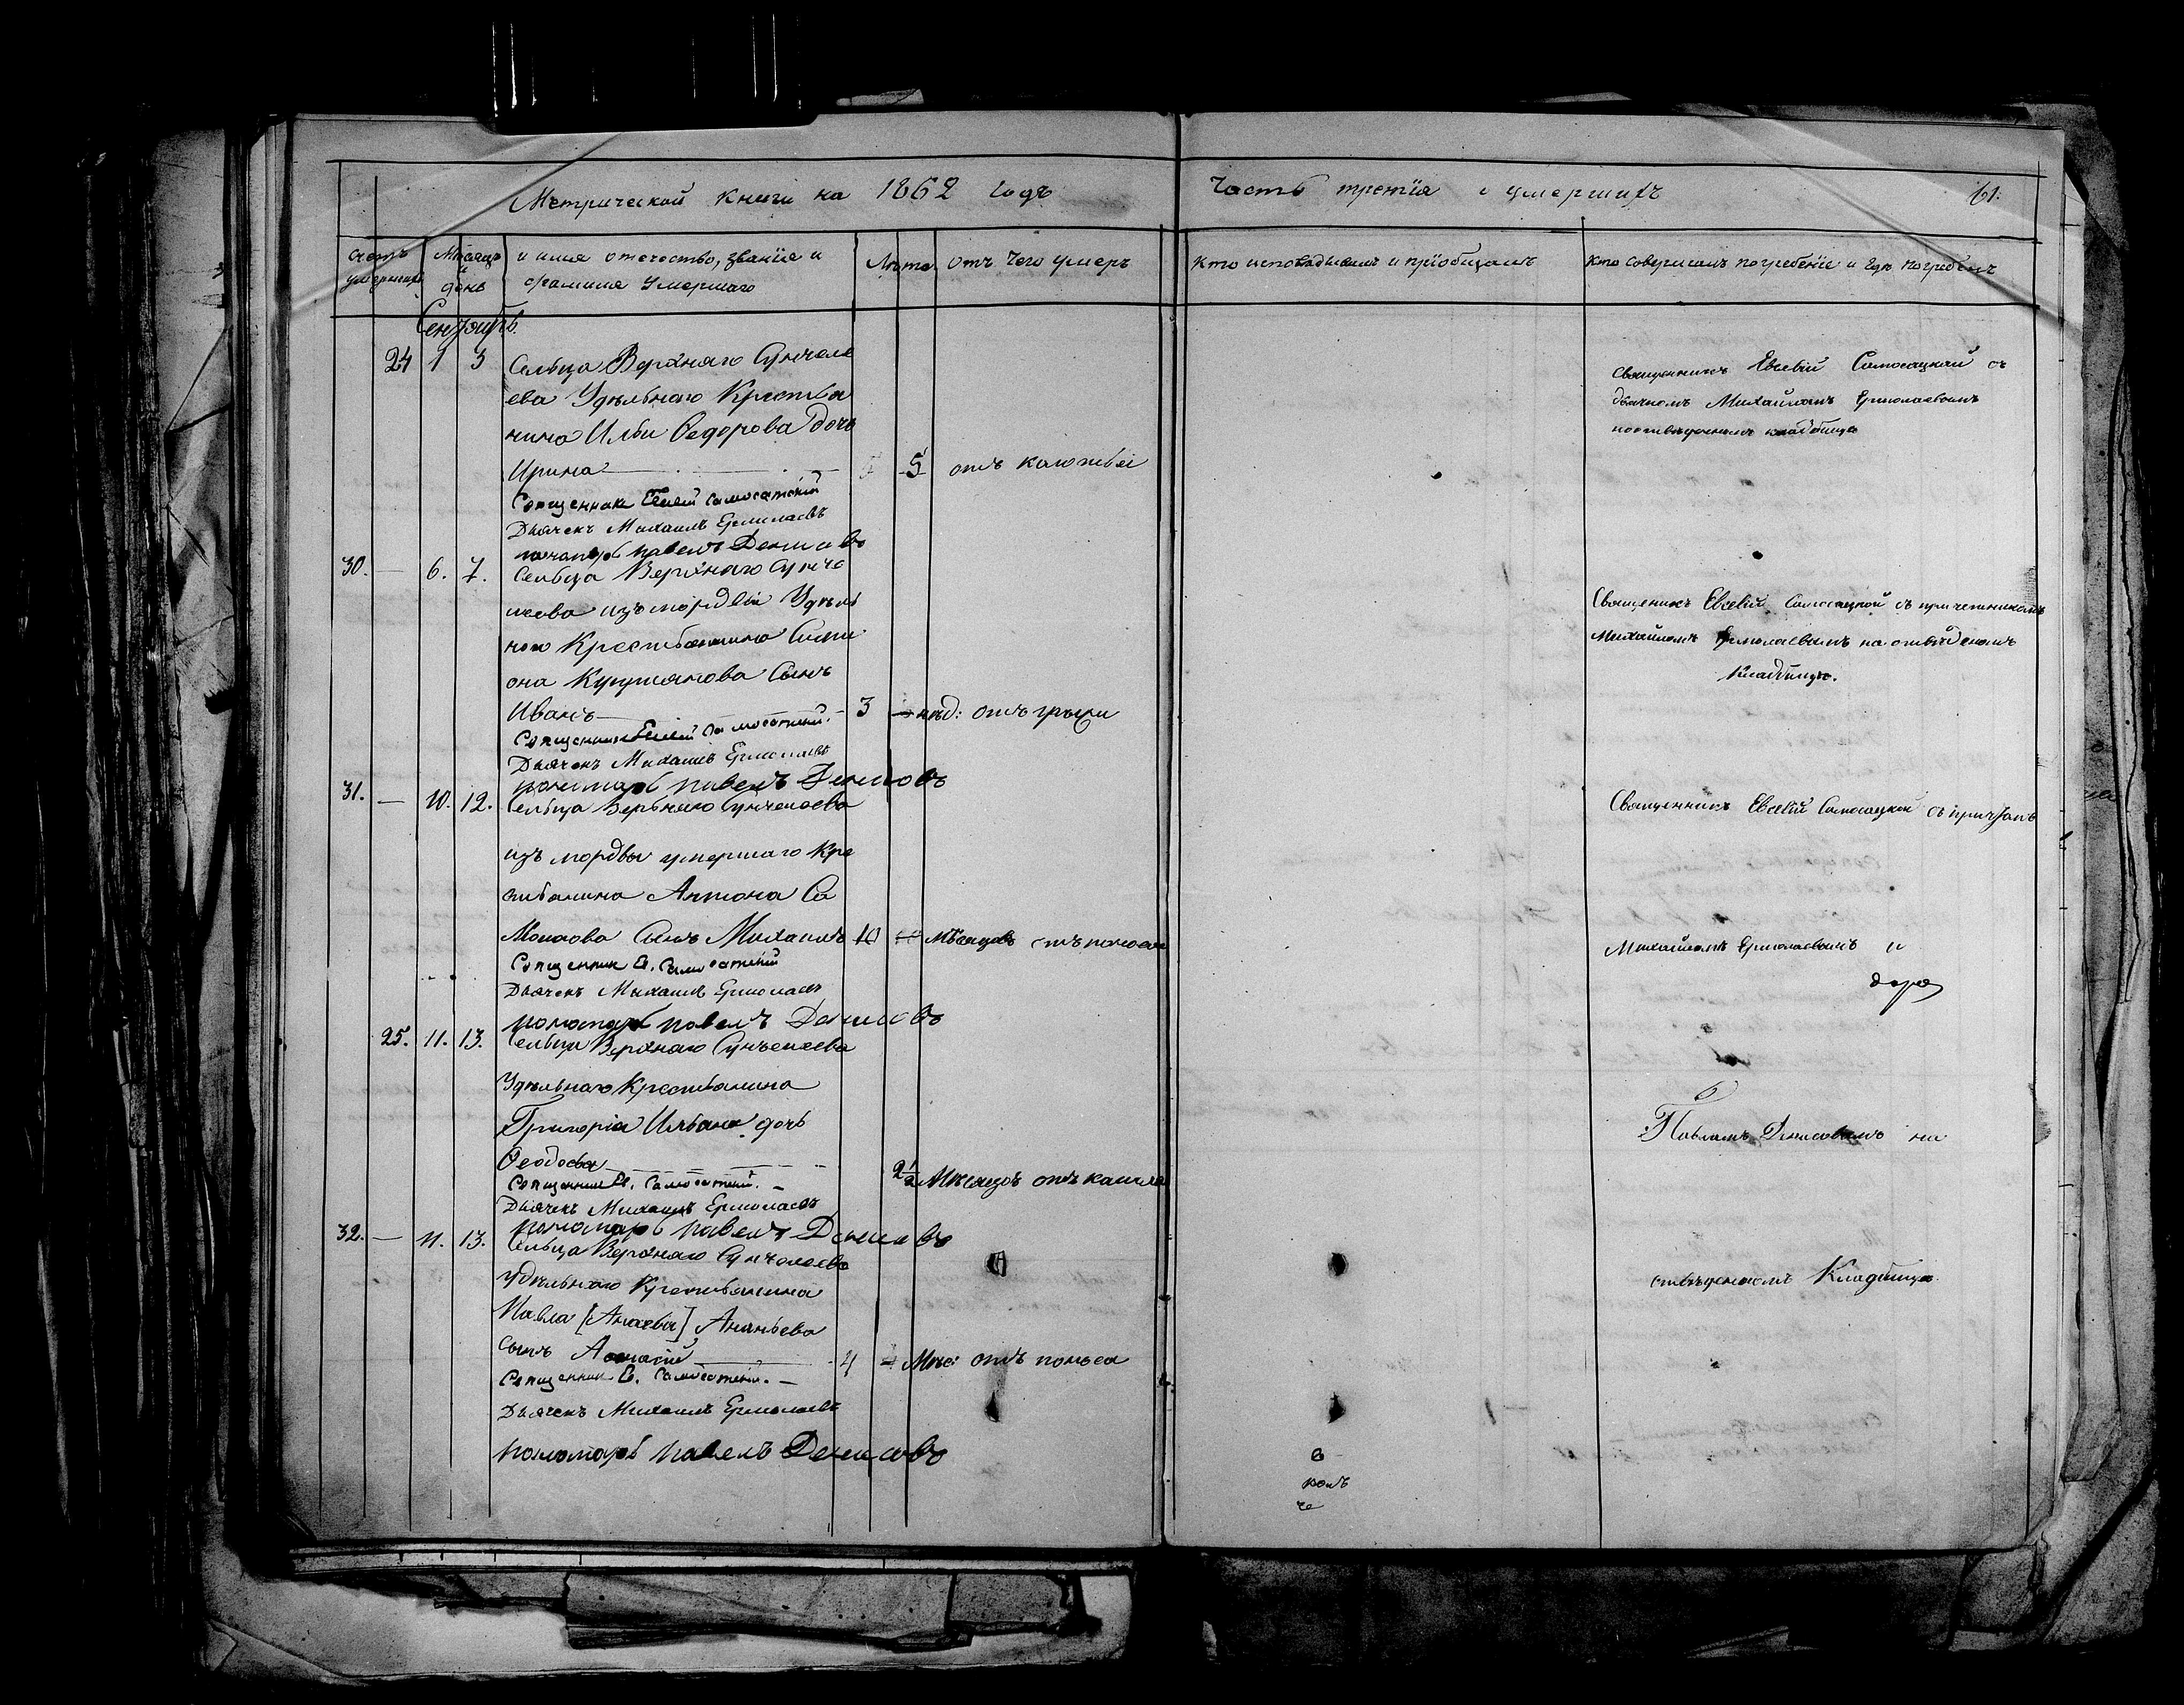 Метрической книги на 1862 годъ
Часть третія о умершихъ
61.
счетъ умершихъ
Мѣсяцъ и день
и имя отечество, званіе и фамилія Умершаго
Лѣта
отъ Чего умеръ
Кто исповѣдывалъ и пріобщалъ
Кто совершалъ погребеніе и Гдѣ погребенъ
Сентябрь
24 1 3 Сельца Верхняго Сунчеле
ева Удѣльнаго Крестья
нина Ильи Ѳедорова дочь
Ирина 5 отъ
Священникъ Евсевій Самосатскій
Дьячекъ Михаилъ Ермолаевъ
пономарь павелъ Денисовъ
Священникъ Евсевій Самосацкой съ
дьячкомъ Михайломъ Ермолаевымъ
кладбище
30. — 6. 7. Сельца Верхняго Сунче
леева изъ мордвы Удѣль
ной Крестьянина Сими
она Купріянова Сынъ
Иванъ 3 нѣд: отъ грыжи
Священникъ Евсевій Самосатскій.
Дьячекъ Михаилъ Ермолаевъ
пономарь павелъ Денисовъ
Священникъ Евсевій Самосацкой съ причетникомъ
Михайломъ Ермолаевымъ на отвѣденомъ
Кладбище.
31. — 10. 12. Сельца Верхняго Сунчелеева
изъ мордвы умершаго Кре
стьянина Антона Са
Сынъ Михаилъ 10 Мѣсяцовъ отъ поноса
Священник Е. Самосатскій
Дьячекъ Михаилъ Ермолаевъ
пономарь павелъ Денисовъ
Священникъ Евсевій Самосацкой съ
Михайломъ Ермолаевымъ и
25. 11. 13. Сельца Верхняго Сунчелеева
Удѣльнаго Крестьянина
Григорія Ильина дочь
Ѳеодосья 2 1/2 Мѣсяцовъ отъ кашля
Священник Е. Самосатскій. —
Дьячекъ Михаилъ Ермолаевъ
пономарь павелъ Денисовъ
Павломъ Денисовымъ на
32. — 11. 13. Сельца Верхняго Сунчелеева
удѣльнаго Крестьянина
Павла [Анаева] Ананьева
сынъ 4 Мѣс: отъ поноса
Священник Е. Самосатскій. —
Дьячекъ Михаилъ Ермолаевъ
пономарь павелъ Денисовъ
отвѣденномъ Кладбище